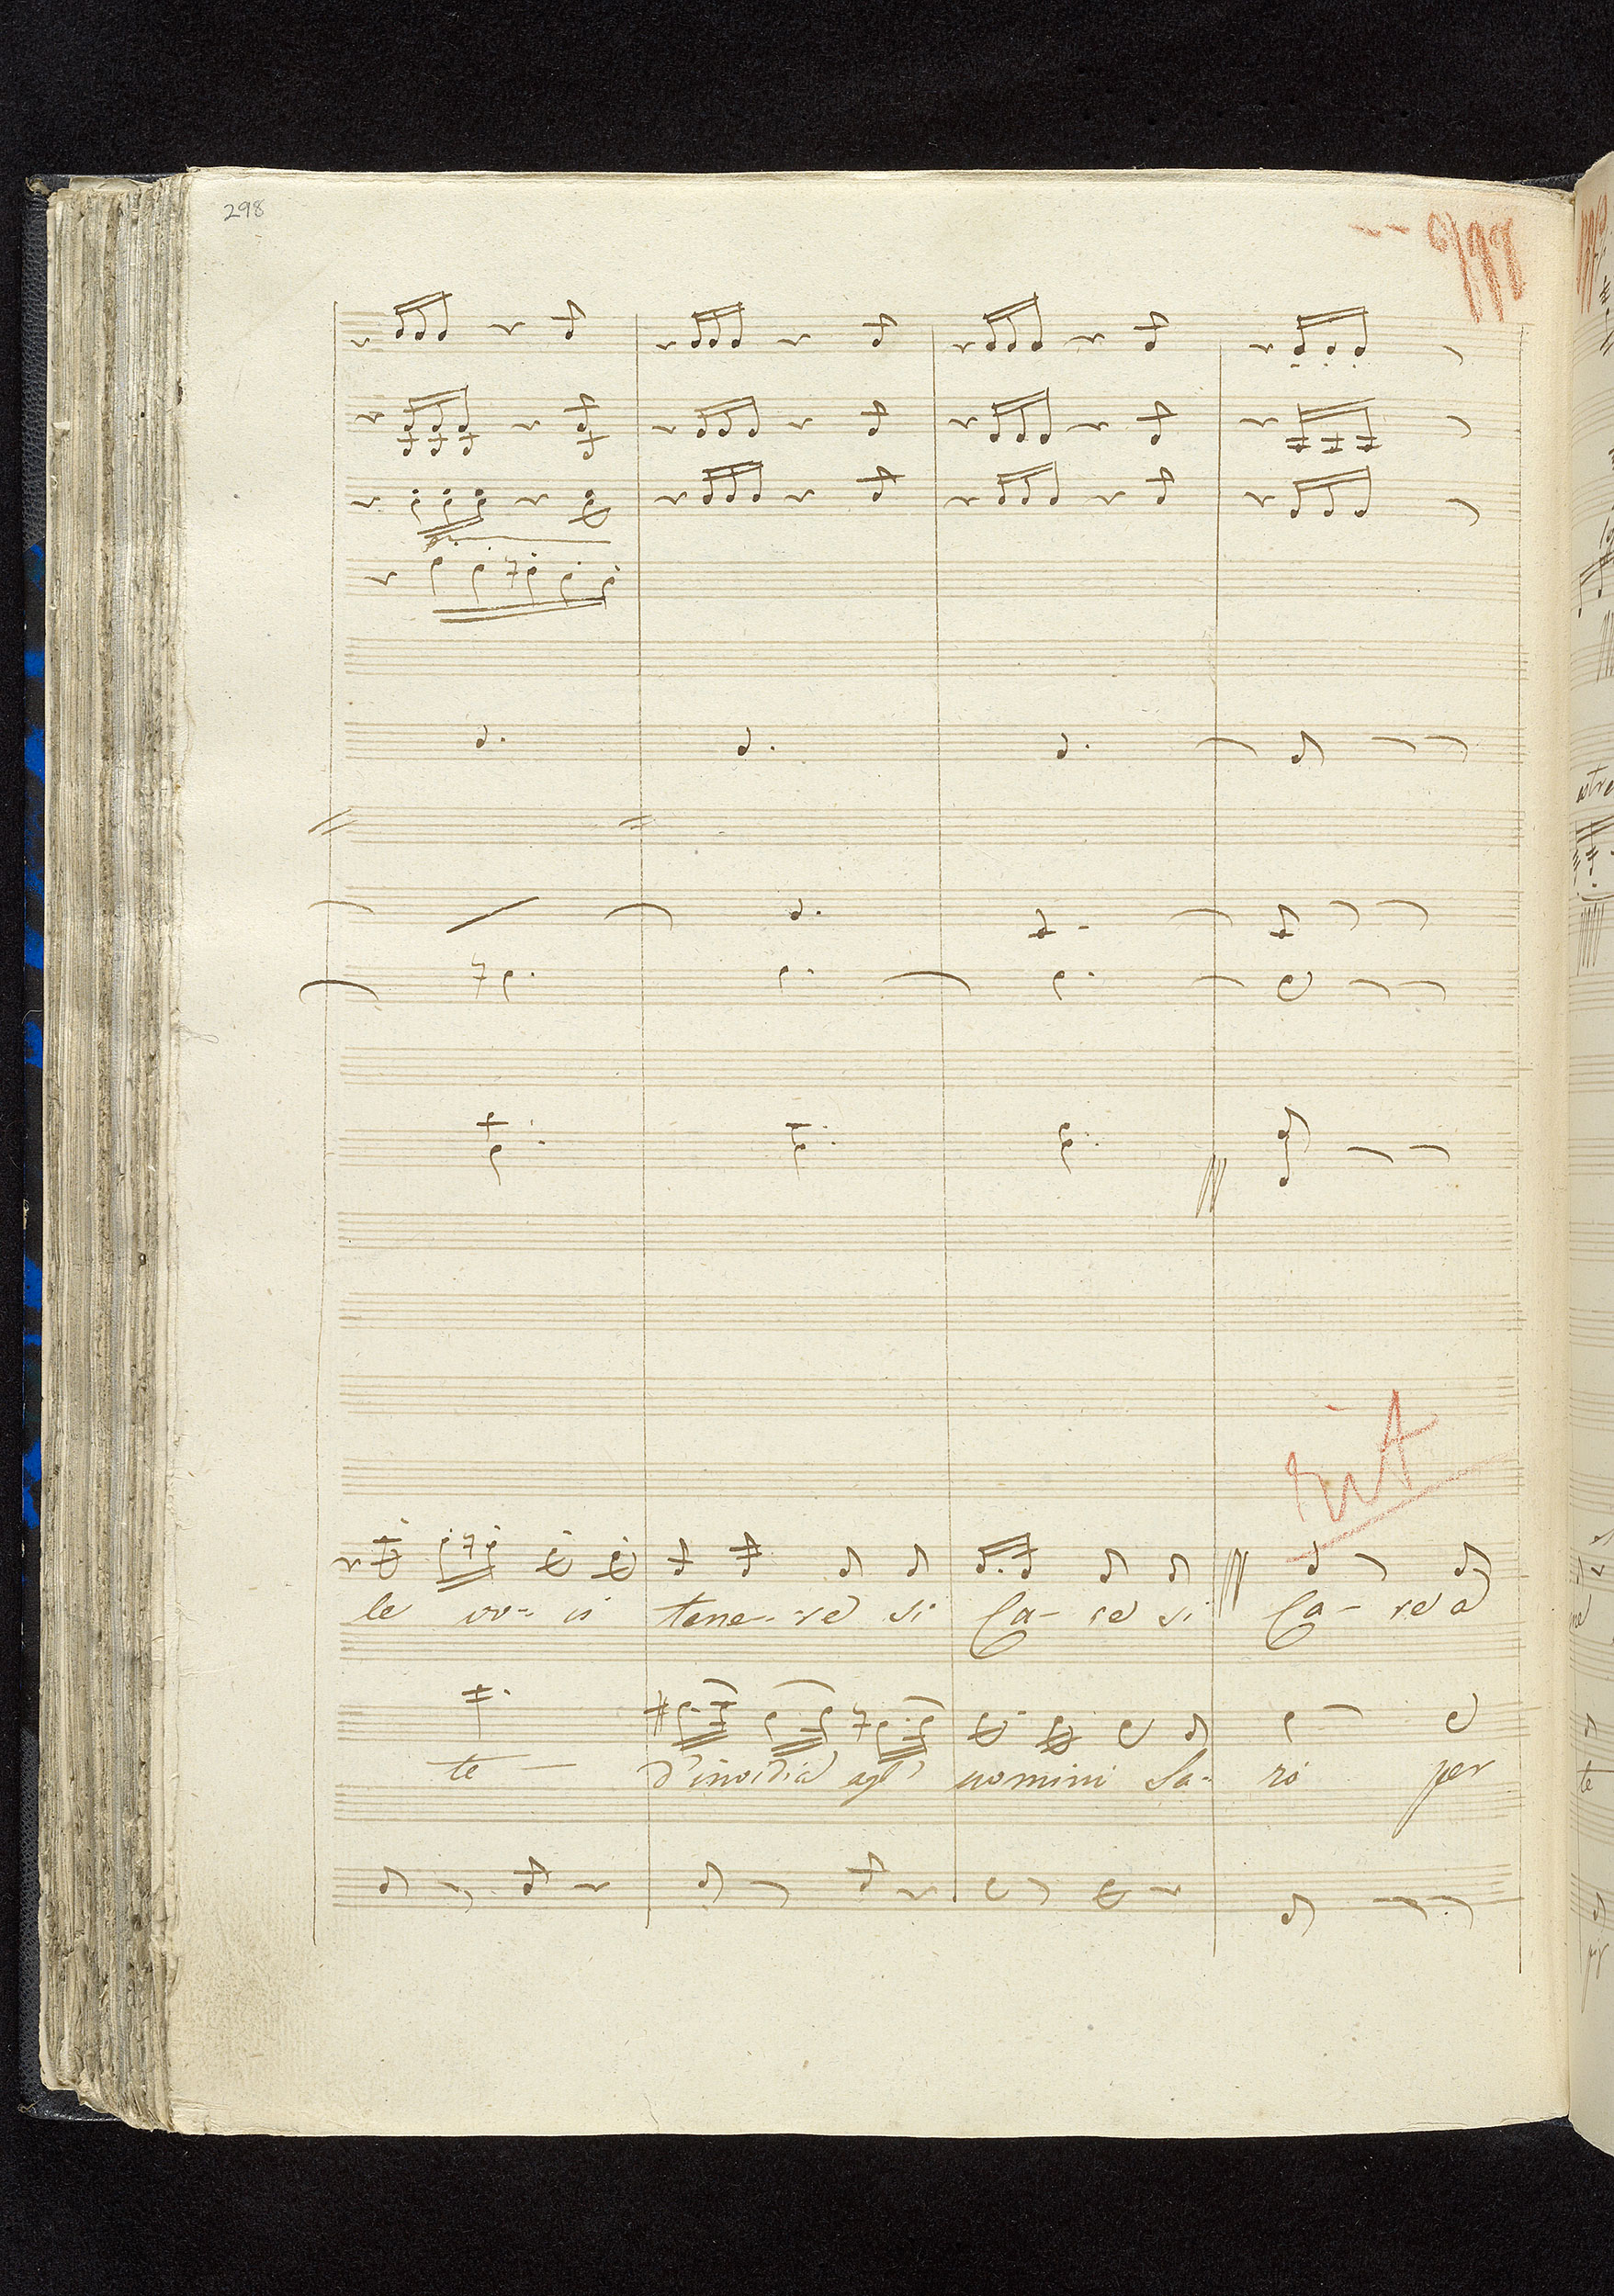 298
rit
le vo- ci tene- re si Ca- re si Ca- re a
te d'invidia agl' uomini Sa- rò per